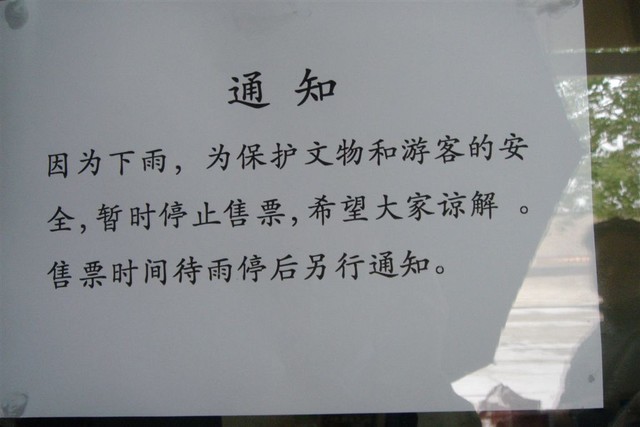 通知
因为下雨，为保护文物和游客的安
全,暂时停止售票,希望大家谅解 。
售票时间待雨停后另行通知。